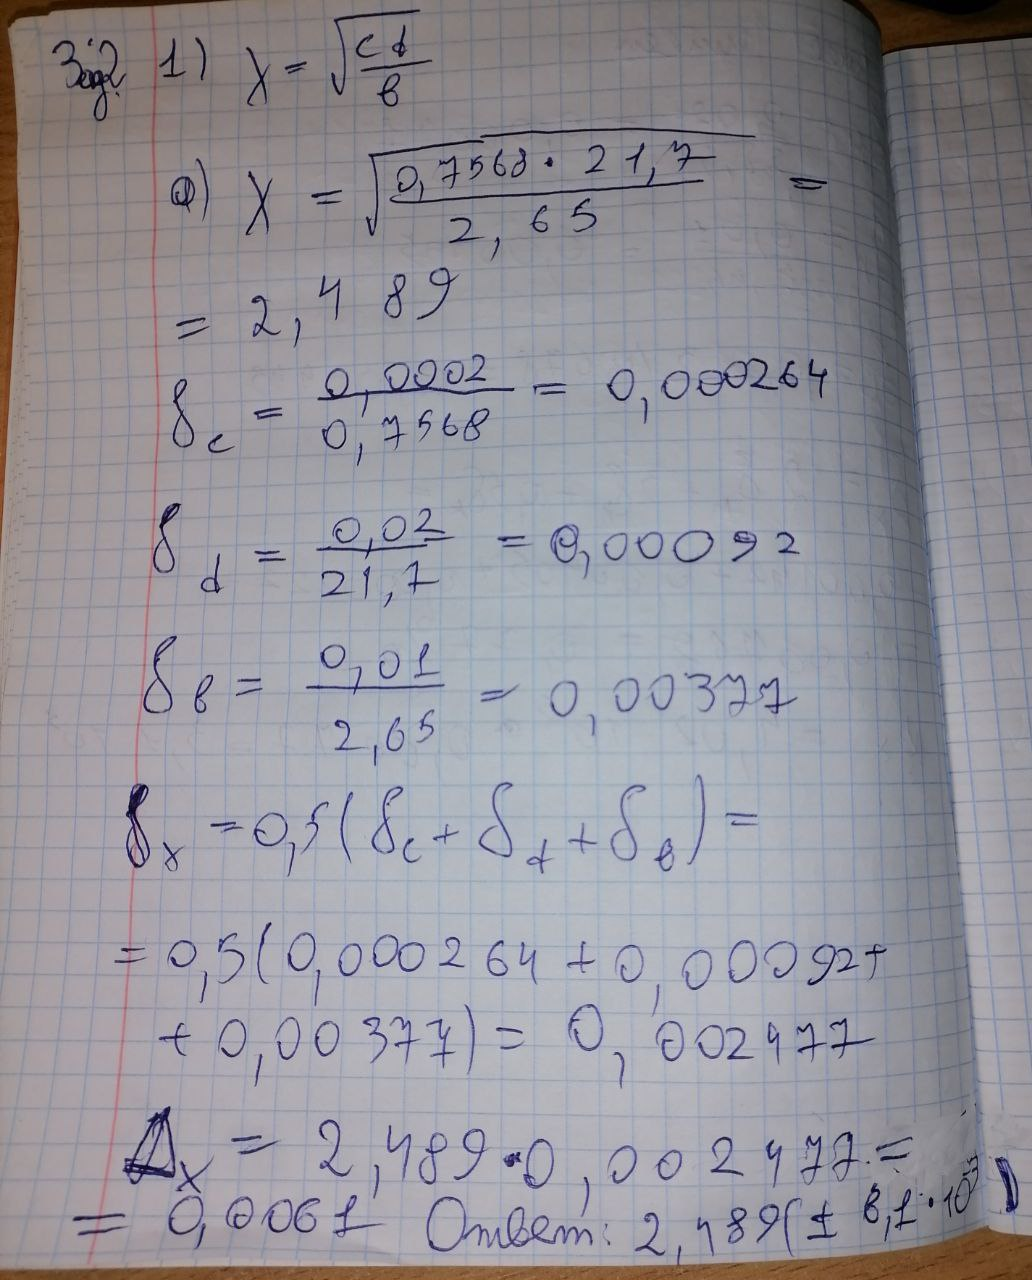 Зад2. 1) X = √(cd/в)
а) X = √(0,7568 · 21,7 / 2,65) =
= 2,489
δc = 0,0002 / 0,7568 = 0,000264
δd = 0,02 / 21,7 = 0,00092
δв = 0,01 / 2,65 = 0,00377
δx = 0,5(δc + δd + δв) =
= 0,5(0,000264 + 0,00092 +
+ 0,00377) = 0,002477
Δx = 2,489 · 0,002477 =
= 0,0061 Ответ: 2,489(± 6,1 · 10⁻³)